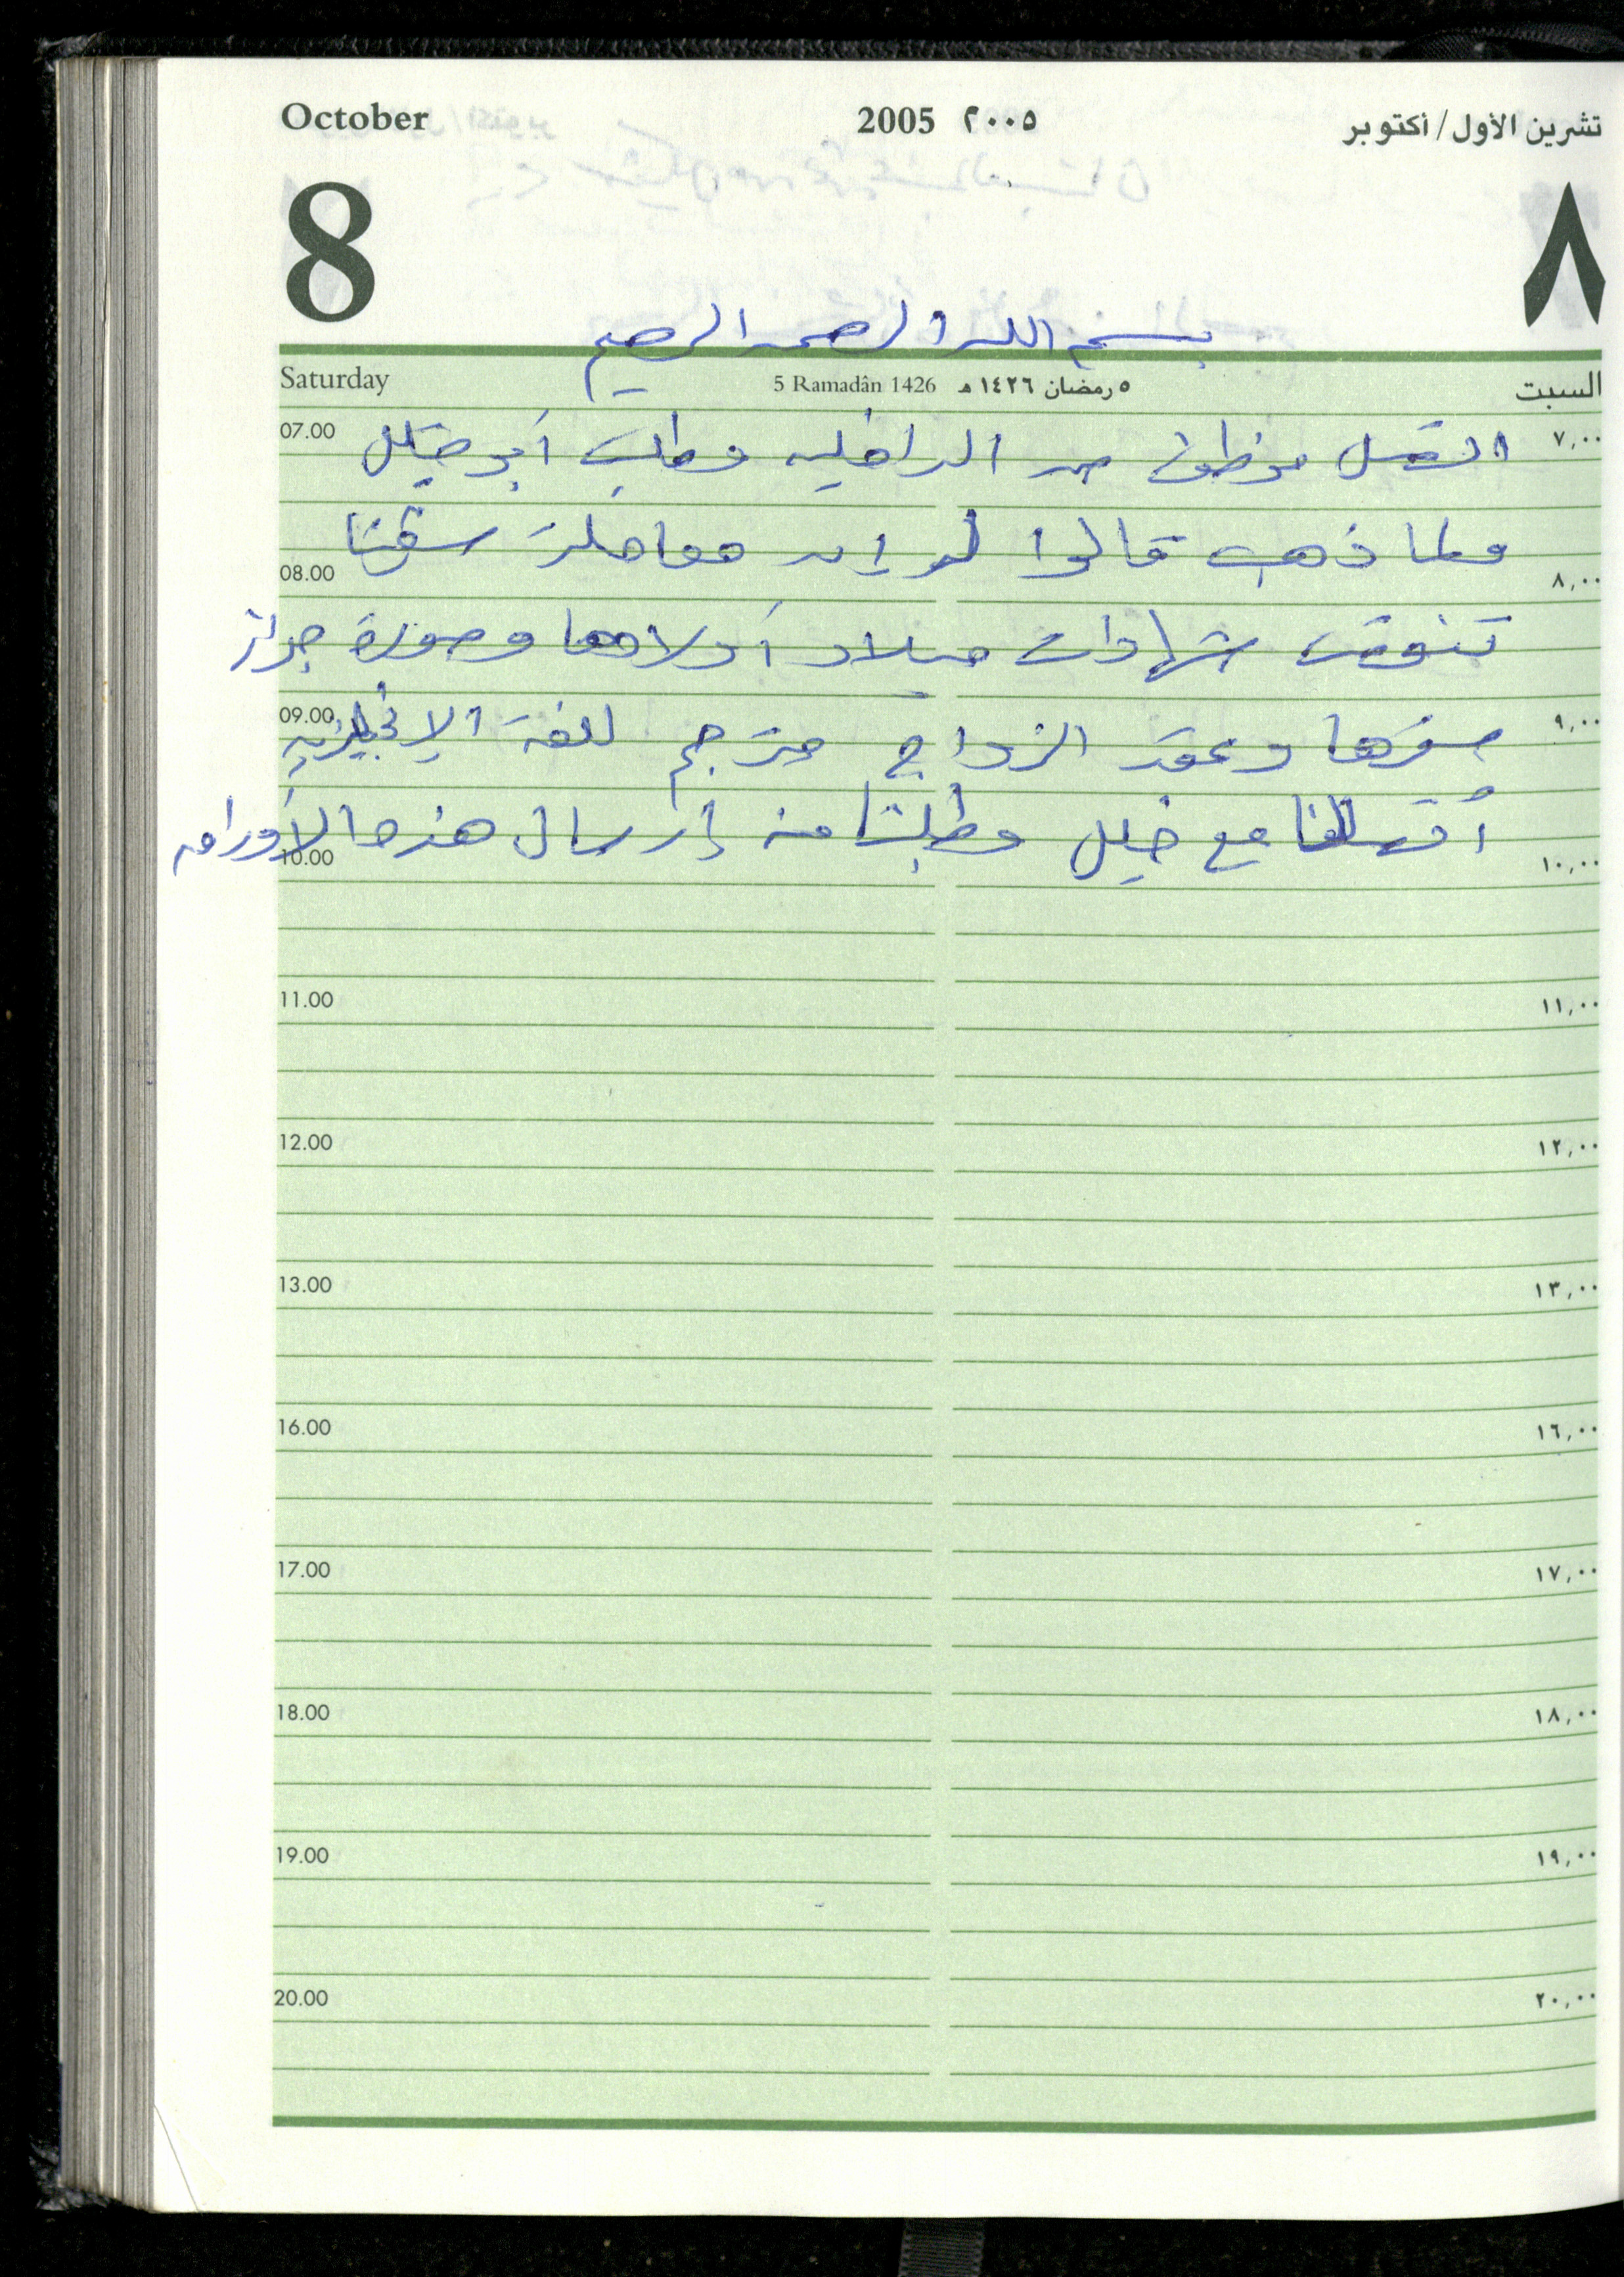 October 2005 ٢٠٠٥ تشرين الأول/أكتوبر
8 ٨
بسم الله الرحمن الرحيم
Saturday 5 Ramadân 1426 ٥ رمضان ١٤٢٦ هـ السبت
07.00 ٧,٠٠
اتصل موظف من الداخلية وطلب أبو خليل
ولما ذهب قالوا له إن معاملة
08.00 ٨,٠٠
شهادات ميلاد أولادها وصورة جواز
09.00 ٩,٠٠
سفرها وعقد الزواج مترجم للغة الإنجليزية
اتصلنا مع خليل وطلبنا منه إرسال هذه الأوراق
10.00 ١٠,٠٠
11.00 ١١,٠٠
12.00 ١٢,٠٠
13.00 ١٣,٠٠
16.00 ١٦,٠٠
17.00 ١٧,٠٠
18.00 ١٨,٠٠
19.00 ١٩,٠٠
20.00 ٢٠,٠٠